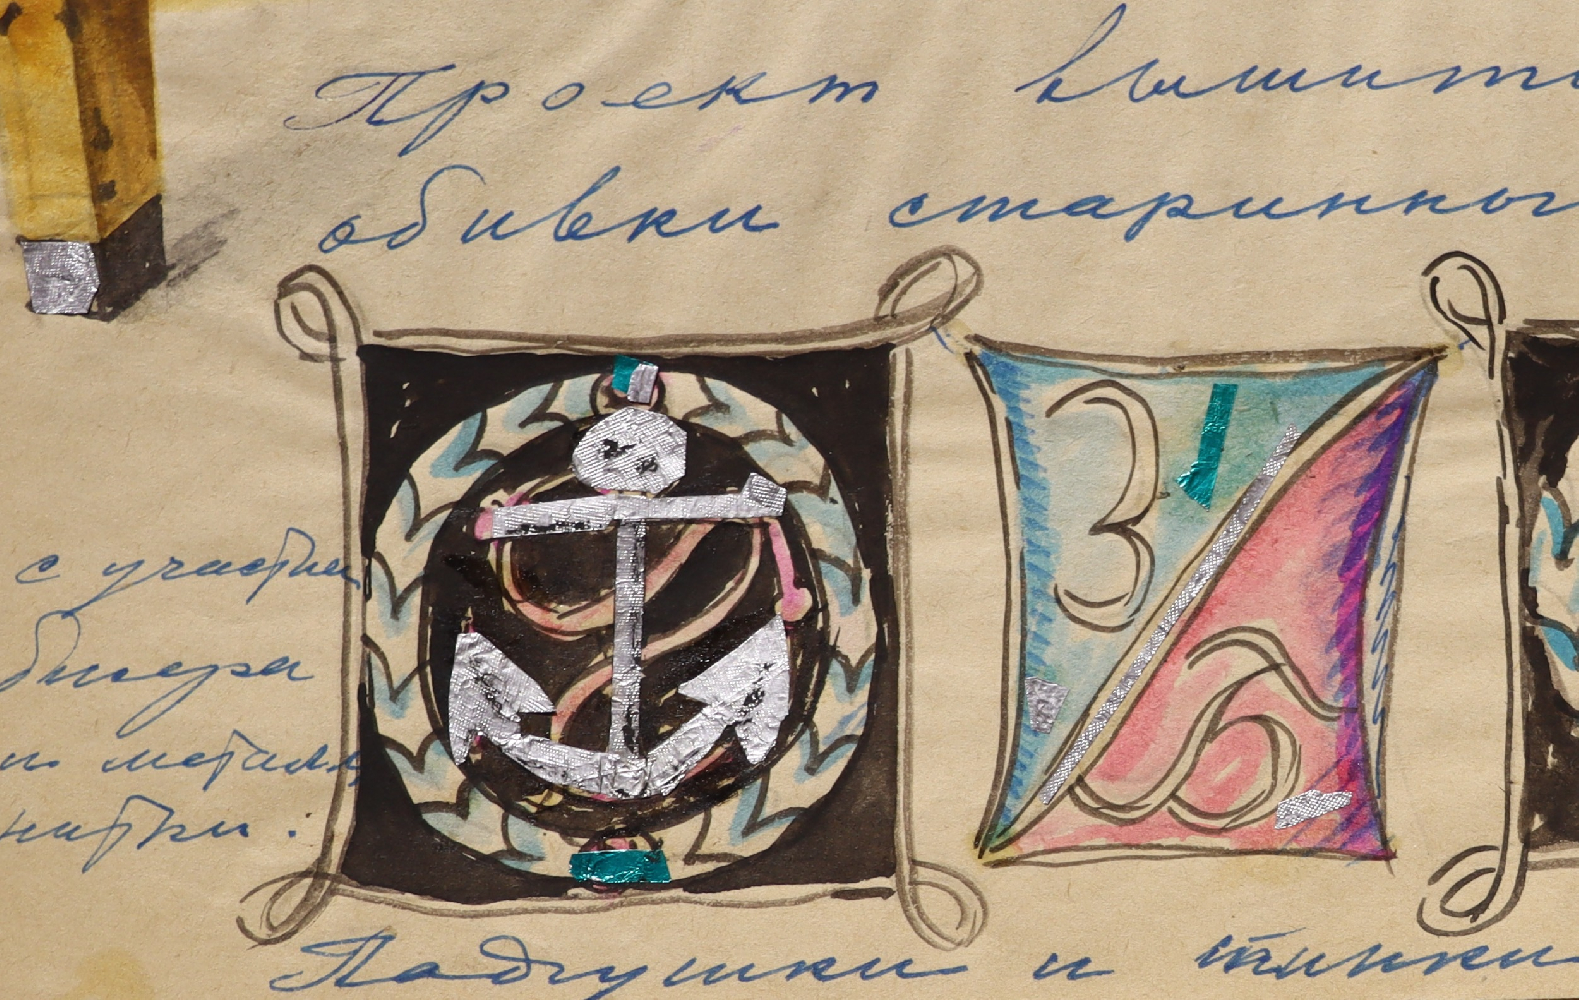 Проект вышит
обивки старинны
с участием
бисера
и металл
нитки.
З
Б
Подушки и спинки